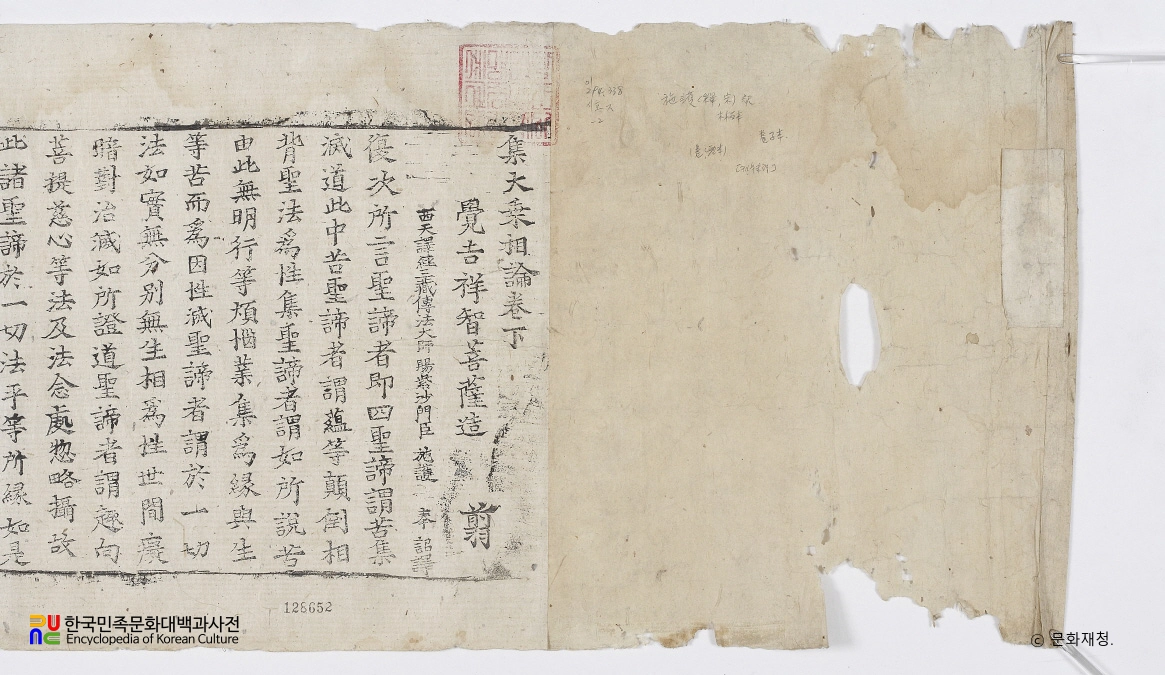 施護(釋,宋)
集大乗相論卷下
覺吉祥智菩薩造 翦
西天譯經三藏傳法大師賜紫沙門臣 施護 奉 詔譯
復次所言聖諦者即四聖諦謂苦集
滅道此中苦聖諦者謂蘊等顛倒相
背聖法爲性集聖諦者謂如所說苦
由此無明行等煩惱業集爲緣與生
等苦而爲因性滅聖諦者謂於一切
法如實無分別無生相爲性世間癡
暗對治滅如所證道聖諦者謂趣向
菩提慈心等法及法念處惣略攝故
此諸聖諦於一切法平等所緣如是
128652
한국민족문화대백과사전
Encyclopedia of Korean Culture
© 문화재청.